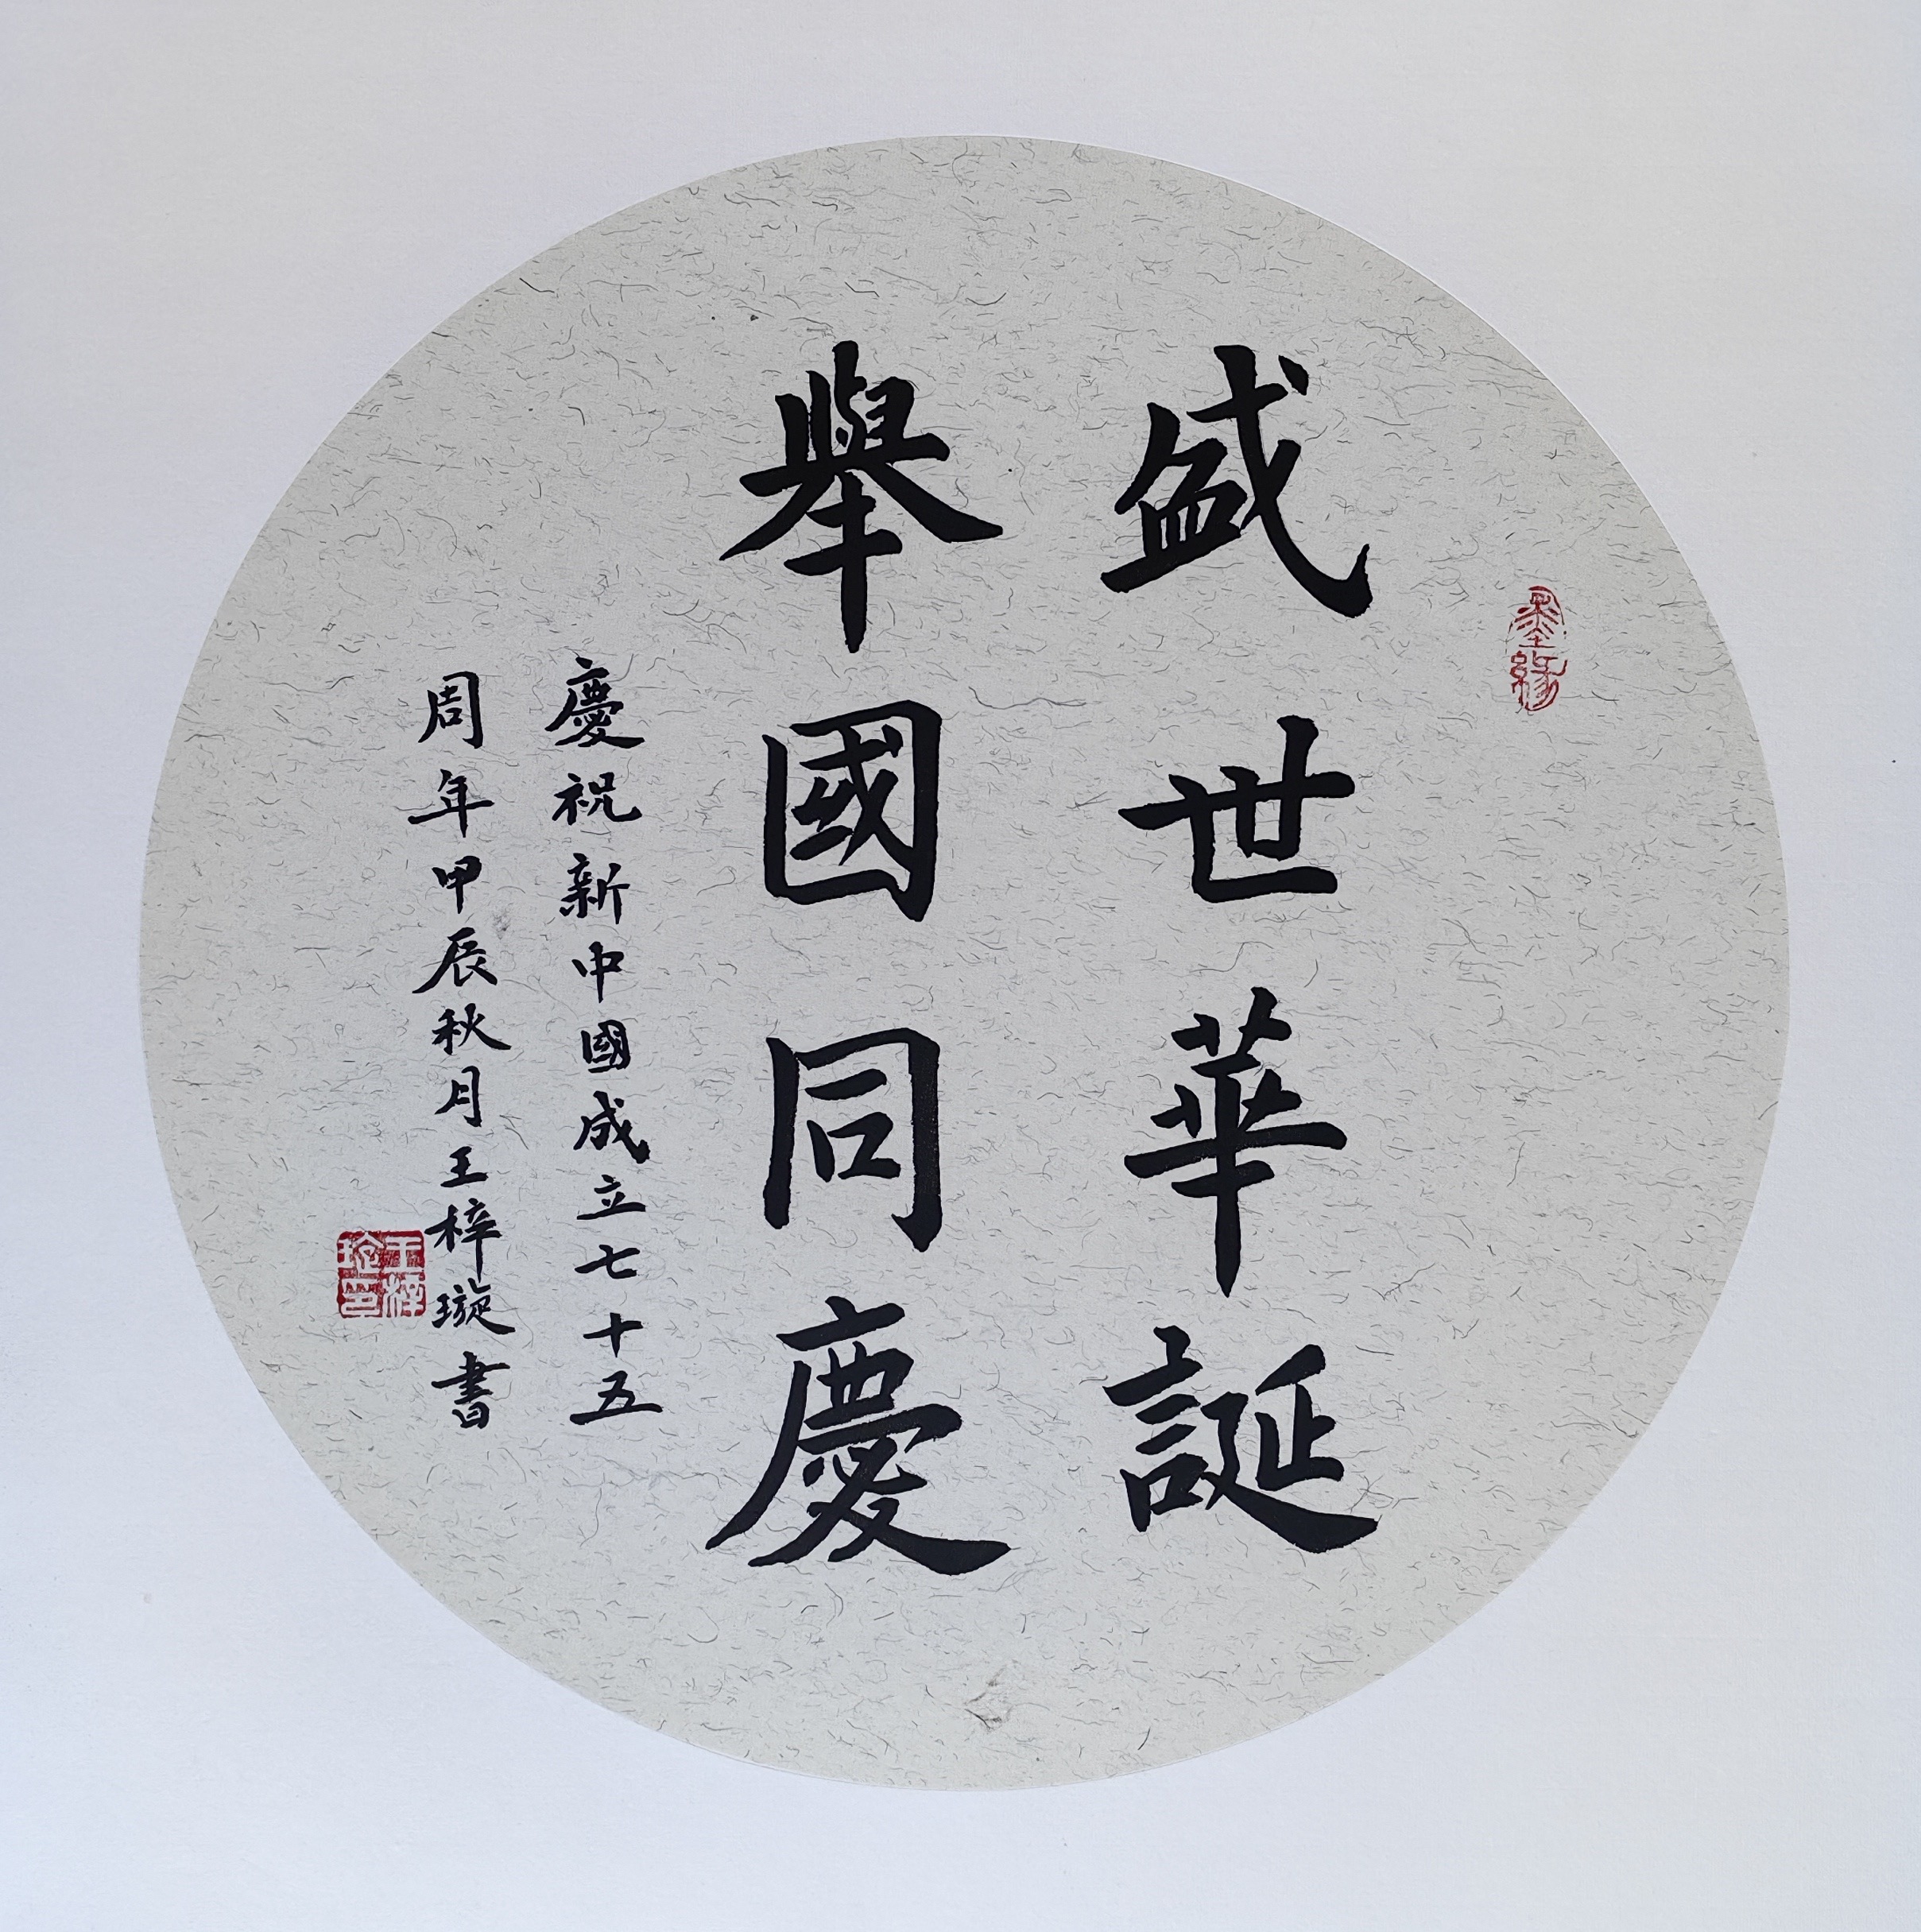 盛世華誕
舉國同慶
慶祝新中國成立七十五
周年甲辰秋月王梓璇書
墨緣
王梓璇印